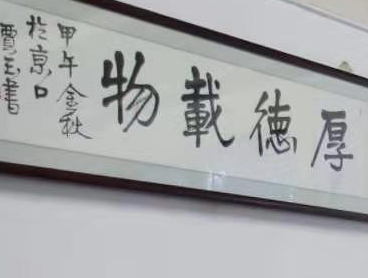 厚德載物
甲午金秋
於京口
賈玉書